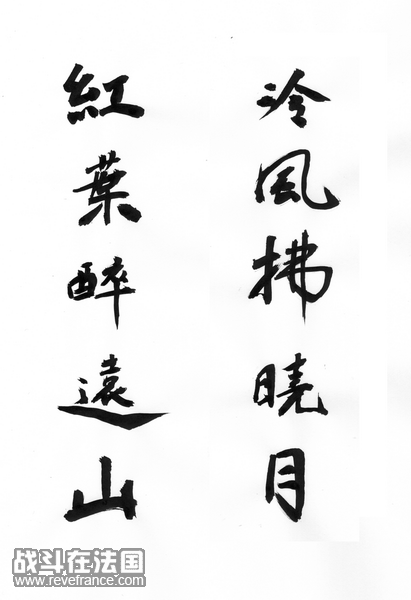 冷風拂曉月
紅葉醉遠山
战斗在法国
www.revefrance.com